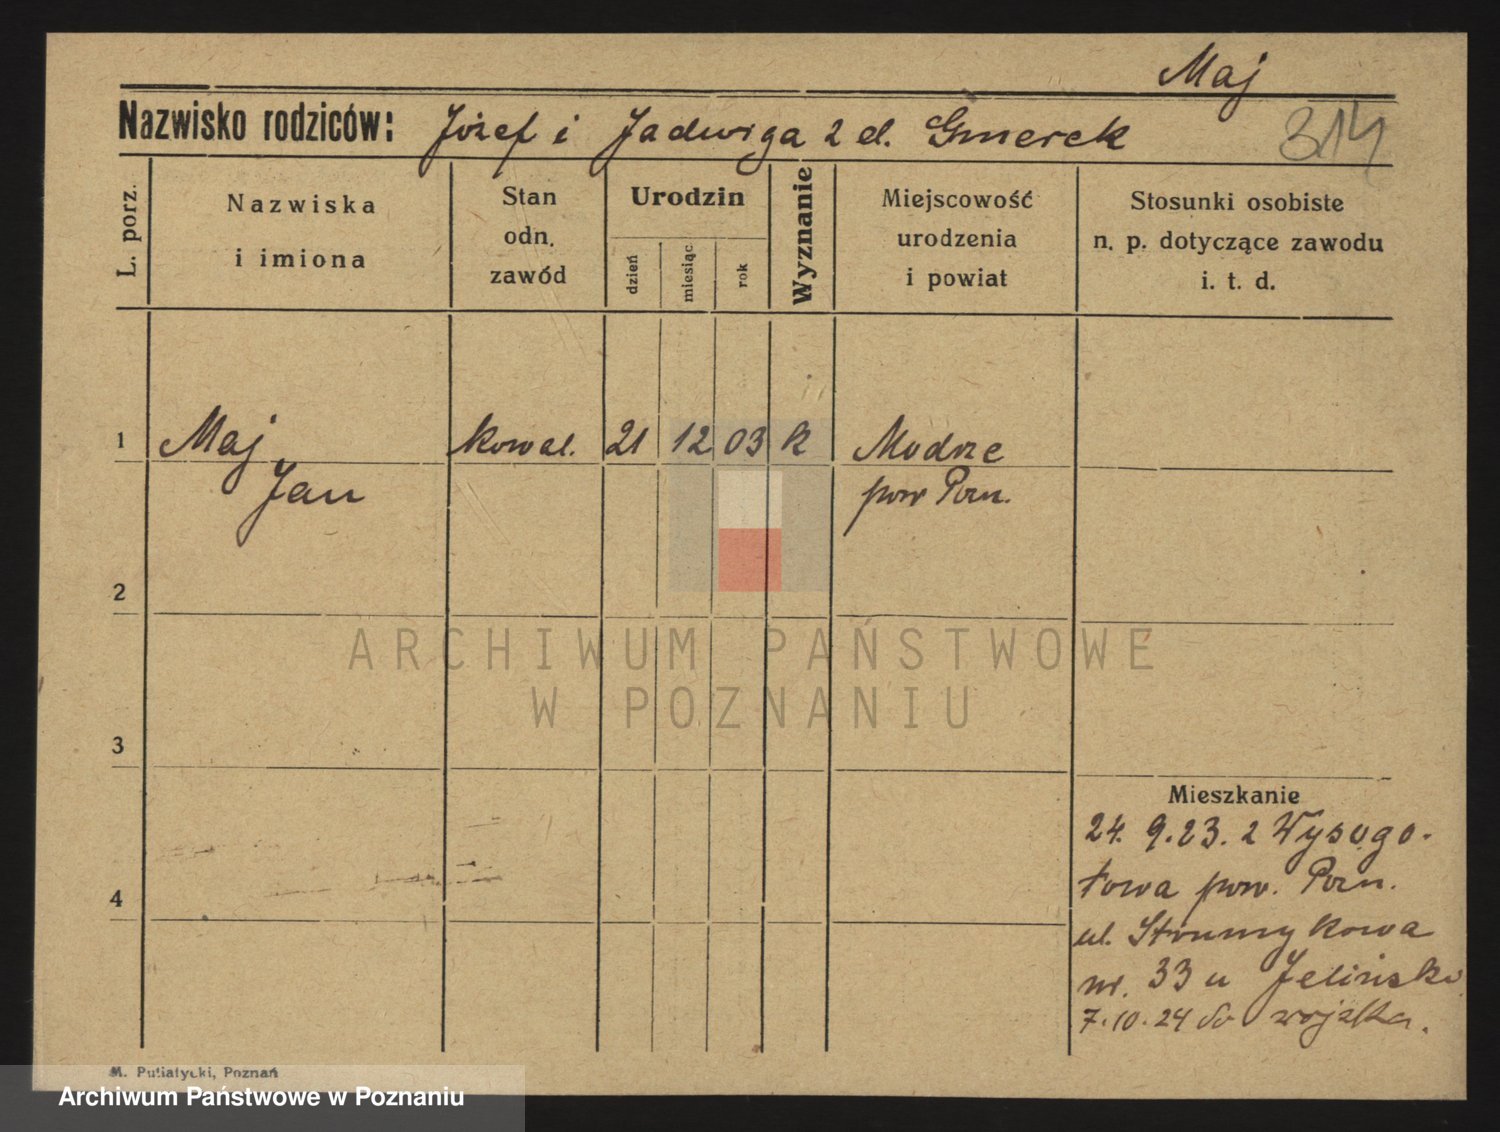 Maj
Nazwisko rodziców: Józef i Jadwiga z d. Gmerek 314
L. porz.
Nazwiska
i imiona
Stan
odn.
zawód
Urodzin
dzień
miesiąc
rok
Wyznanie
Miejscowość
urodzenia
i powiat
Stosunki osobiste
n. p. dotyczące zawodu
i. t. d.
1 Maj kowal. 21 12 03 k Modrze
Jan pow Pozn.
2
ARCHIWUM PAŃSTWOWE
W POZNANIU
3
Mieszkanie
24. 9. 23. z Wysogo-
towa pow. Pozn.
4
ul. Strumykowa
nr. 33 u Jelińsk
7.10.24 do wojska.
M. Putiatycki, Poznań
Archiwum Państwowe w Poznaniu